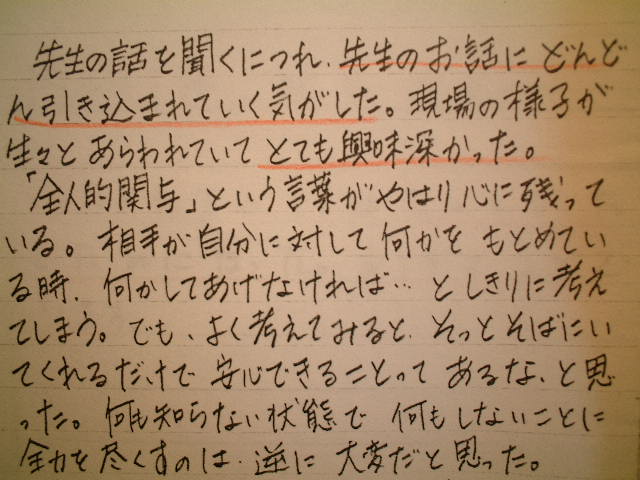 先生の話を聞くにつれ、先生のお話にどんど
ん引き込まれていく気がした。現場の様子が
生々とあらわれていてとても興味深かった。
「全人的関与」という言葉がやはり心に残って
いる。相手が自分に対して何かをもとめてい
る時、何かしてあげなければ…としきりに考え
てしまう。でも、よく考えてみると、そっとそばにい
てくれるだけで安心できることってあるな、と思
った。何も知らない状態で何もしないことに
全力を尽くすのは、逆に大変だと思った。